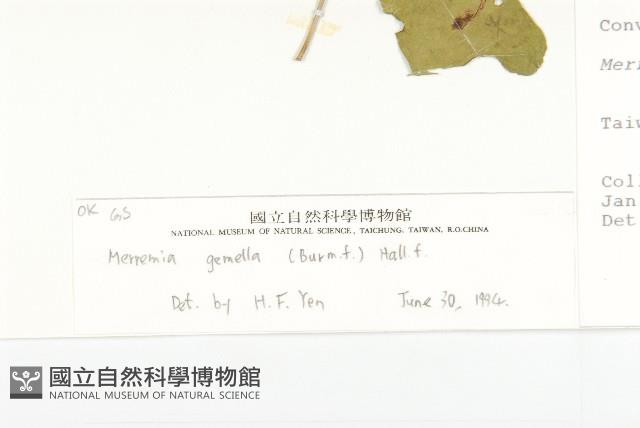 Conv
Merr
Taiw
Coll
Jan
Det
OK GS
國立自然科學博物館
NATIONAL MUSEUM OF NATURAL SCIENCE, TAICHUNG, TAIWAN, R.O.CHINA
Merremia gemella (Burm.f.) Hall.f.
Det. by H. F. Yen June 30, 1994.
國立自然科學博物館
NATIONAL MUSEUM OF NATURAL SCIENCE